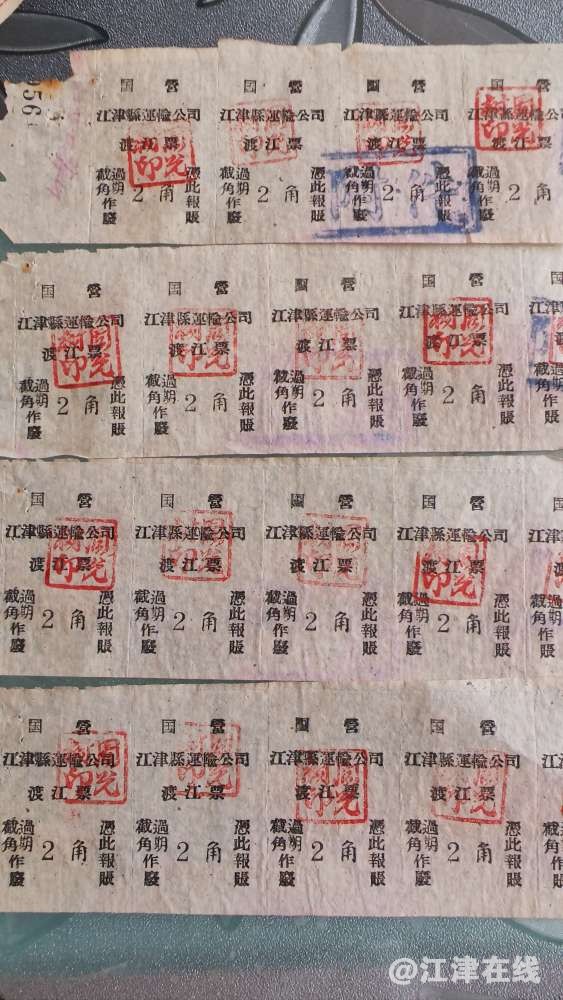 056
国營
江津縣運輸公司
渡江票
憑此報賬
2角
過期
截角作廢
国營
江津縣運輸公司
渡江票
憑此報賬
2角
過期
截角作廢
国營
江津縣運輸公司
渡江票
憑此報賬
2角
過期
截角作廢
国營
江津縣運輸公司
渡江票
憑此報賬
2角
過期
截角作廢
国營
江津縣運輸公司
渡江票
憑此報賬
2角
過期
截角作廢
国營
江津縣運輸公司
渡江票
憑此報賬
2角
過期
截角作廢
国營
江津縣運輸公司
渡江票
憑此報賬
2角
過期
截角作廢
国營
江津縣運輸公司
渡江票
憑此報賬
2角
過期
截角作廢
国
江津
渡
過期
截角作廢
国營
江津縣運輸公司
渡江票
憑此報賬
2角
過期
截角作廢
国營
江津縣運輸公司
渡江票
憑此報賬
2角
過期
截角作廢
国營
江津縣運輸公司
渡江票
憑此報賬
2角
過期
截角作廢
国營
江津縣運輸公司
渡江票
憑此報賬
2角
過期
截角作廢
国
江津
渡
過期
截角作廢
国營
江津縣運輸公司
渡江票
憑此報賬
2角
過期
截角作廢
国營
江津縣運輸公司
渡江票
憑此報賬
2角
過期
截角作廢
国營
江津縣運輸公司
渡江票
憑此報賬
2角
過期
截角作廢
国營
江津縣運輸公司
渡江票
憑此報賬
2角
過期
截角作廢
江
過期
截角作廢
@江津在线